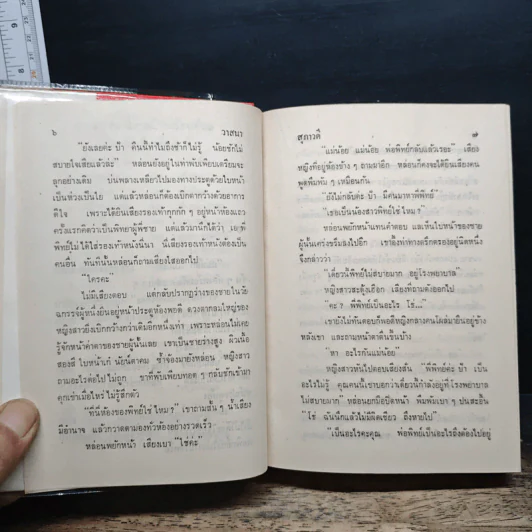 ๖ วาสนา
"ยังเลยค่ะ ป้า คืนนี้ทำไมถึงช้าก็ไม่รู้ น้อยชักไม่
สบายใจเสียแล้วล่ะ" หล่อนยังอยู่ในท่าพับเพียบเตรียมจะ
ลุกอย่างเดิม บ่นพลางเหลียวไปมองทางประตูด้วยใบหน้า
เป็นห่วงเป็นใย แต่แล้วหล่อนก็ต้องเบิกตากว้างด้วยอาการ
ดีใจ เพราะได้ยินเสียงรองเท้ากุกกัก ๆ อยู่หน้าห้องแถว
ครั้งแรกคิดว่าเป็นพิทยาผู้พี่ชาย แต่แล้วมานึกได้ว่า เอ๊ะพี่
พิทย์ไม่ได้ใส่รองเท้าหนังนี่นา นี่เสียงรองเท้าหนังต้องเป็น
คนอื่น ทันทีนั้นหล่อนก็ถามเสียงใสออกไป
"ใครคะ"
ไม่มีเสียงตอบ แต่กลับปรากฏร่างของชายในวัย
ฉกรรจ์ผู้หนึ่งยืนอยู่หน้าประตูห้องพอดี ดวงตากลมใหญ่ของ
หญิงสาวยิ่งเบิกกว้างกว่าเดิมอีกหนึ่งเท่า เพราะหล่อนไม่เคย
รู้จักหน้าค่าตาของชายผู้นั้นเลย เขาเป็นชายร่างสูง ผิวเนื้อ
สองสี ใบหน้าเก๋ นัยน์ตาคม จ้องมายังหล่อน หญิงสาว
ถามอะไรต่อไปไม่ถูก ขาที่พับเพียบทอด ๆ กลับชักเข้ามา
คุกเข่าเมื่อไหร่ไม่รู้สึกตัว
"นี่ห้องของพิทย์ใช่ไหม?" เขาถามสั้น ๆ น้ำเสียง
มีอำนาจ แล้วกวาดตามองทั่วห้องอย่างรวดเร็ว
หล่อนพยักหน้า เสียงเบา "ใช่ค่ะ"
สุภาวดี ๗
"แม่น้อย แม่น้อย พ่อพิทย์กลับแล้วเรอะ" เสียง
หญิงที่อยู่ห้องข้าง ๆ ถามมาอีก หล่อนก็คงจะได้ยินเสียงคน
พูดพึมพำ ๆ เหมือนกัน
"ยังไม่กลับค่ะ ป้า มีคนมาหาพี่พิทย์"
"เธอเป็นน้องสาวพิทย์ใช่ไหม?"
หล่อนพยักหน้าแทนคำตอบ และเห็นใบหน้าของชาย
ผู้นั้นเคร่งขรึมลงไปอีก เขานิ่งทำท่าตรึกตรองอยู่นิดหนึ่ง
จึงกล่าวว่า
"เดี๋ยวนี้พิทย์ไม่สบายมาก อยู่โรงพยาบาล"
หญิงสาวสะดุ้งเฮือก เสียงที่ถามดังออกไป
"คะ? พี่พิทย์เป็นอะไร โธ่..."
เขายังไม่ทันตอบก็พอดีหญิงกลางคนโผล่มายืนอยู่ข้าง
หลังเขา และถามหน้าตาตื่นเช่นป้าง
"หา อะไรกันแม่น้อย"
หญิงสาวหันไปตอบเสียงสั่น "พี่พิทย์ค่ะ ป้า เป็น
อะไรไม่รู้ คุณคนนี้เขาบอกว่าเดี๋ยวนี้กำลังอยู่ที่โรงพยาบาล
ไม่สบายมาก" หล่อนยกมือปิดหน้า พึมพัมเบา ๆ ปนสะอื้น
"โธ่ ฉันนึกแล้วไม่มีผิดเชียว ถึงหายไป"
"เป็นอะไรคะคุณ พ่อพิทย์เป็นอะไรถึงต้องไปอยู่